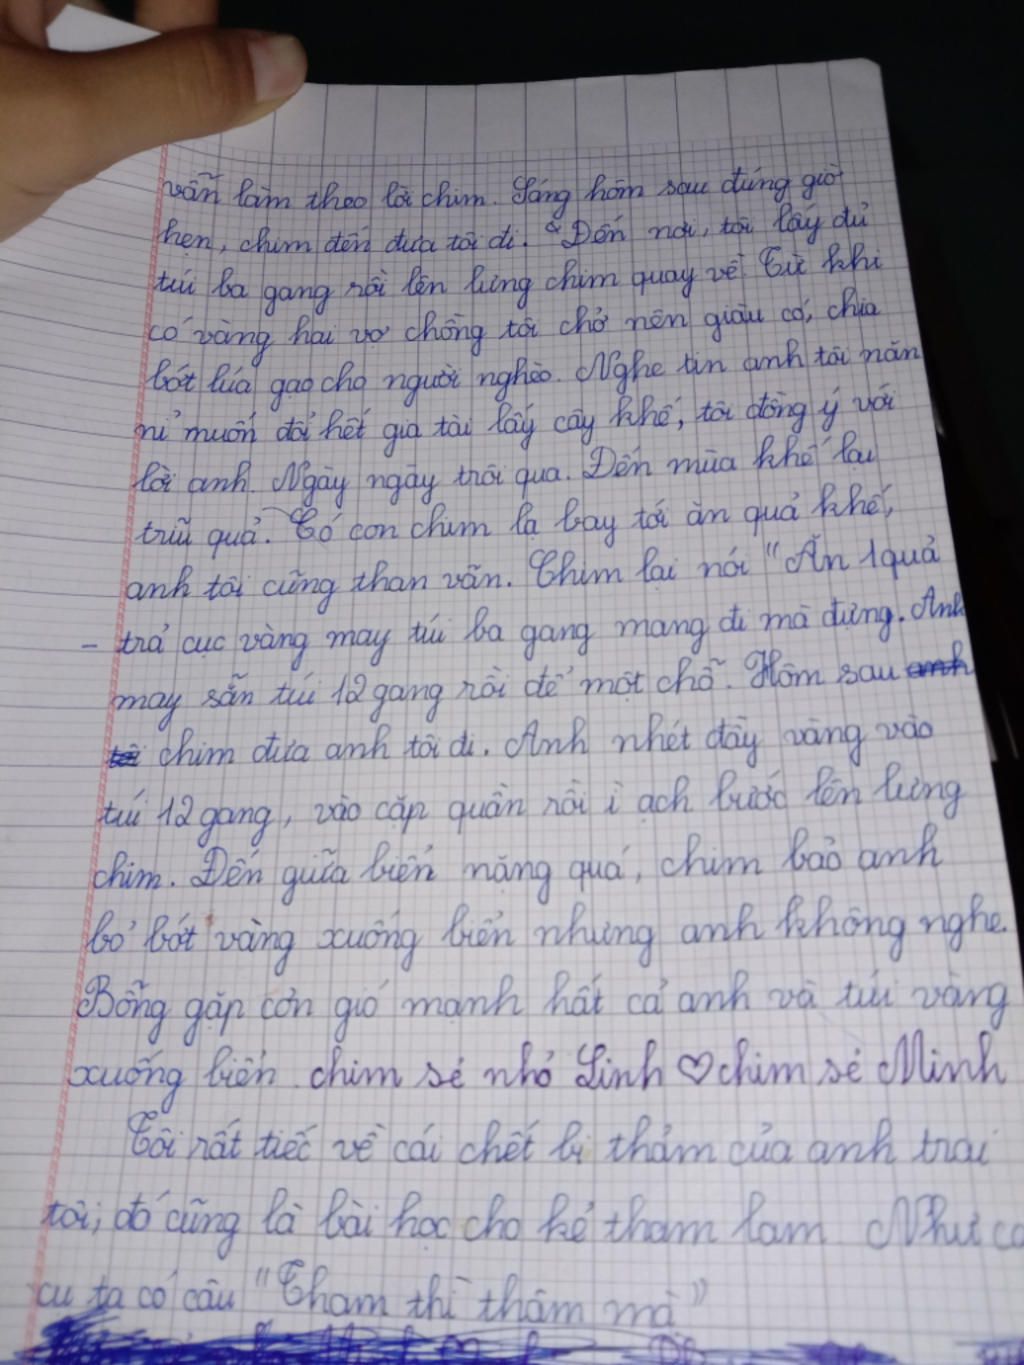 vẫn làm theo lời chim. Sáng hôm sau đúng giờ
hẹn, chim đến đưa tôi đi. Đến nơi, tôi lấy đủ
túi ba gang rồi lên lưng chim quay về. Từ khi
có vàng hai vợ chồng tôi chở nên giàu có, chia
bớt lúa gạo cho người nghèo. Nghe tin anh tôi năn
nỉ muốn đổi hết gia tài lấy cây khế, tôi đồng ý với
lời anh. Ngày ngày trôi qua. Đến mùa khế lại
trĩu quả. Có con chim lạ bay tới ăn quả khế,
anh tôi cũng than vãn. Chim lại nói "Ăn 1 quả
- trả cục vàng may túi ba gang mang đi mà đựng. Anh
may sẵn túi 12 gang rồi để một chỗ. Hôm sau anh
tôi chim đưa anh tôi đi. Anh nhét đầy vàng vào
túi 12 gang, vào cặp quần rồi ì ạch bước lên lưng
chim. Đến giữa biển nặng quá, chim bảo anh
bỏ bớt vàng xuống biển nhưng anh không nghe.
Bỗng gặp cơn gió mạnh hất cả anh và túi vàng
xuống biển. chim sẻ nhỏ Linh ♡ chim sẻ Minh
Tôi rất tiếc về cái chết bi thảm của anh trai
tôi, đó cũng là bài học cho kẻ tham lam. Như
cụ ta có câu "Tham thì thâm mà"